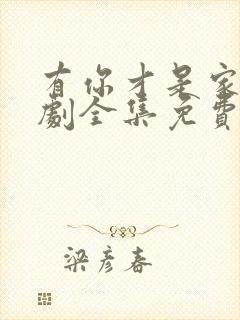 有你才是家
劇全集免費
梁彦春